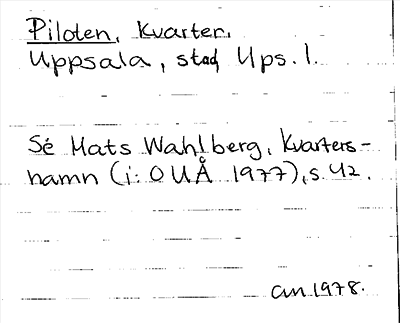 Piloten, Kvarter.
Uppsala, stad Ups. l.
Sé Mats Wahlberg, Kvarters-
namn (i: OUÅ 1977), s. 42.
an. 1978.